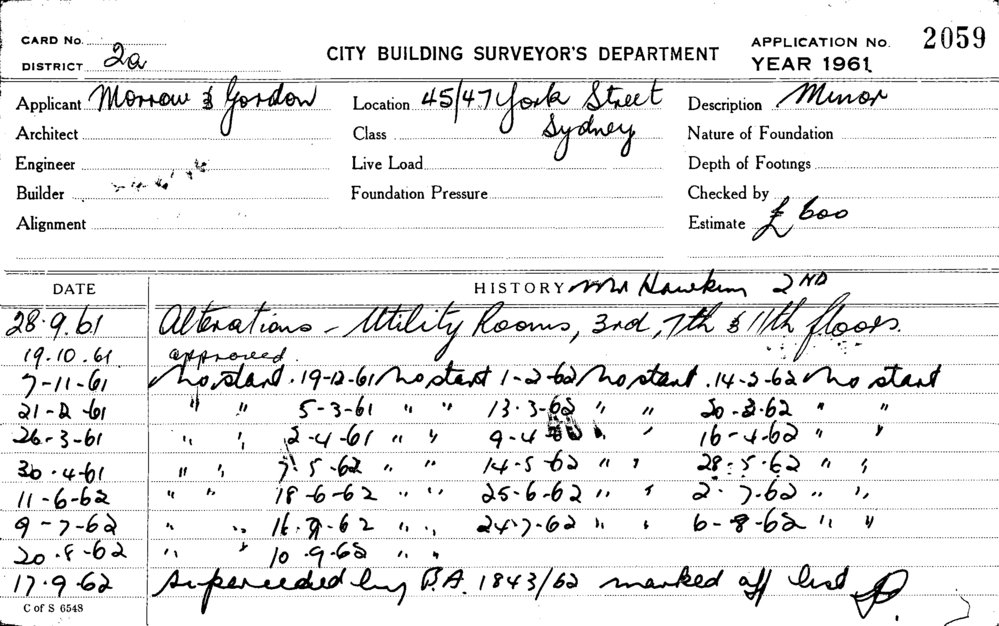 CARD No.
DISTRICT 2a
CITY BUILDING SURVEYOR'S DEPARTMENT
APPLICATION No. 2059
YEAR 1961
Applicant Morrow & Gordon Location 45/47 York Street Description Minor
Architect Class Sydney Nature of Foundation
Engineer Live Load Depth of Footings
Builder Foundation Pressure Checked by
Alignment Estimate £ 600
DATE HISTORY Mr Hawkins 2ND
28.9.61 Alterations - Utility Rooms, 3rd, 7th & 11th floors.
19.10.61 approved.
7-11-61 No start. 19-12-61 No start 1-2-62 No start. 14-2-62 No start
21-2-61 " " 5-3-61 " " 13.3-62 " " 20-3-62 " "
26-3-61 " " 2-4-61 " " 9-4-62 " " 16-4-62 " "
30.4-61 " " 7.5-62 " " 14-5-62 " " 28-5-62 " "
11-6-62 " " 18-6-62 " " 25-6-62 " " 2-7-62 " "
9-7-62 " " 16.7-62 " " 24-7-62 " " 6-8-62 " "
20.8-62 " " 10.9-62 " "
17.9.62 Superceeded by B.A. 1843/62 marked off list
C of S 6548